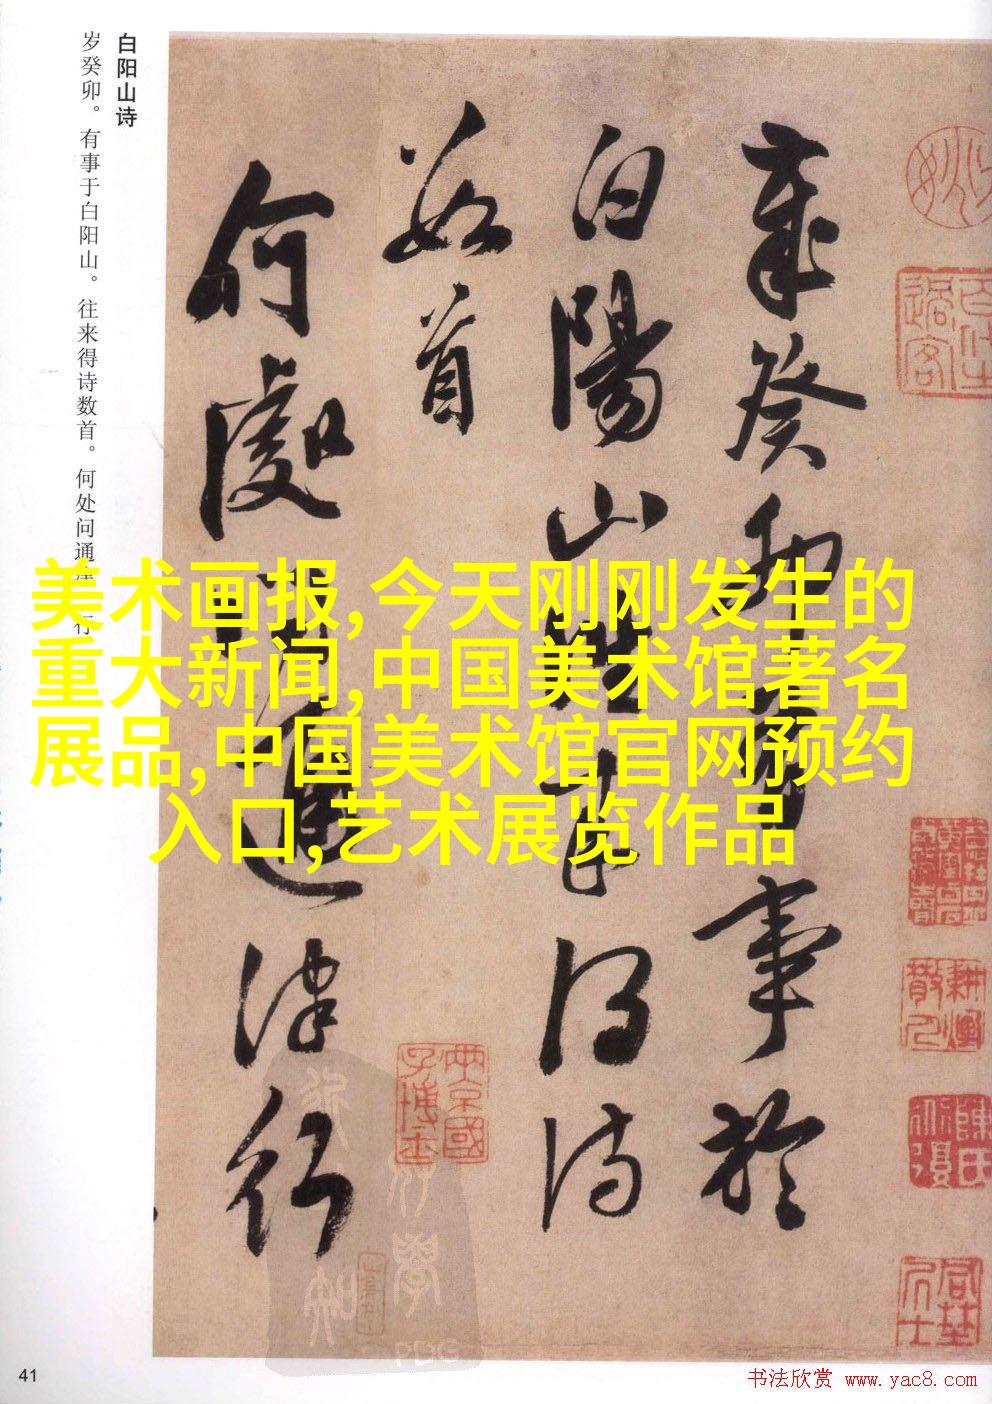 白阳山诗
岁癸卯。有事于白阳山。往来得诗数首。何处问通津。行
歲癸卯有事於
白陽山往來得诗
数首
何處问通津行
美术画报,今天刚刚发生的
重大新闻,中国美术馆著名
展品,中国美术馆官网预约
入口,艺术展览作品
耕煙散人
陳氏
PDG
41
书法欣赏 www.yac8.com